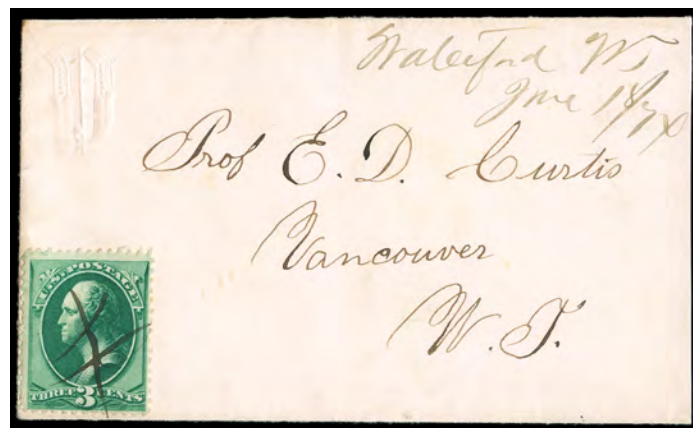 Waterford WT
June 18/78
Prof E. D. Curtis
Vancouver
W. T.
U.S. POSTAGE
THREE 3 CENTS